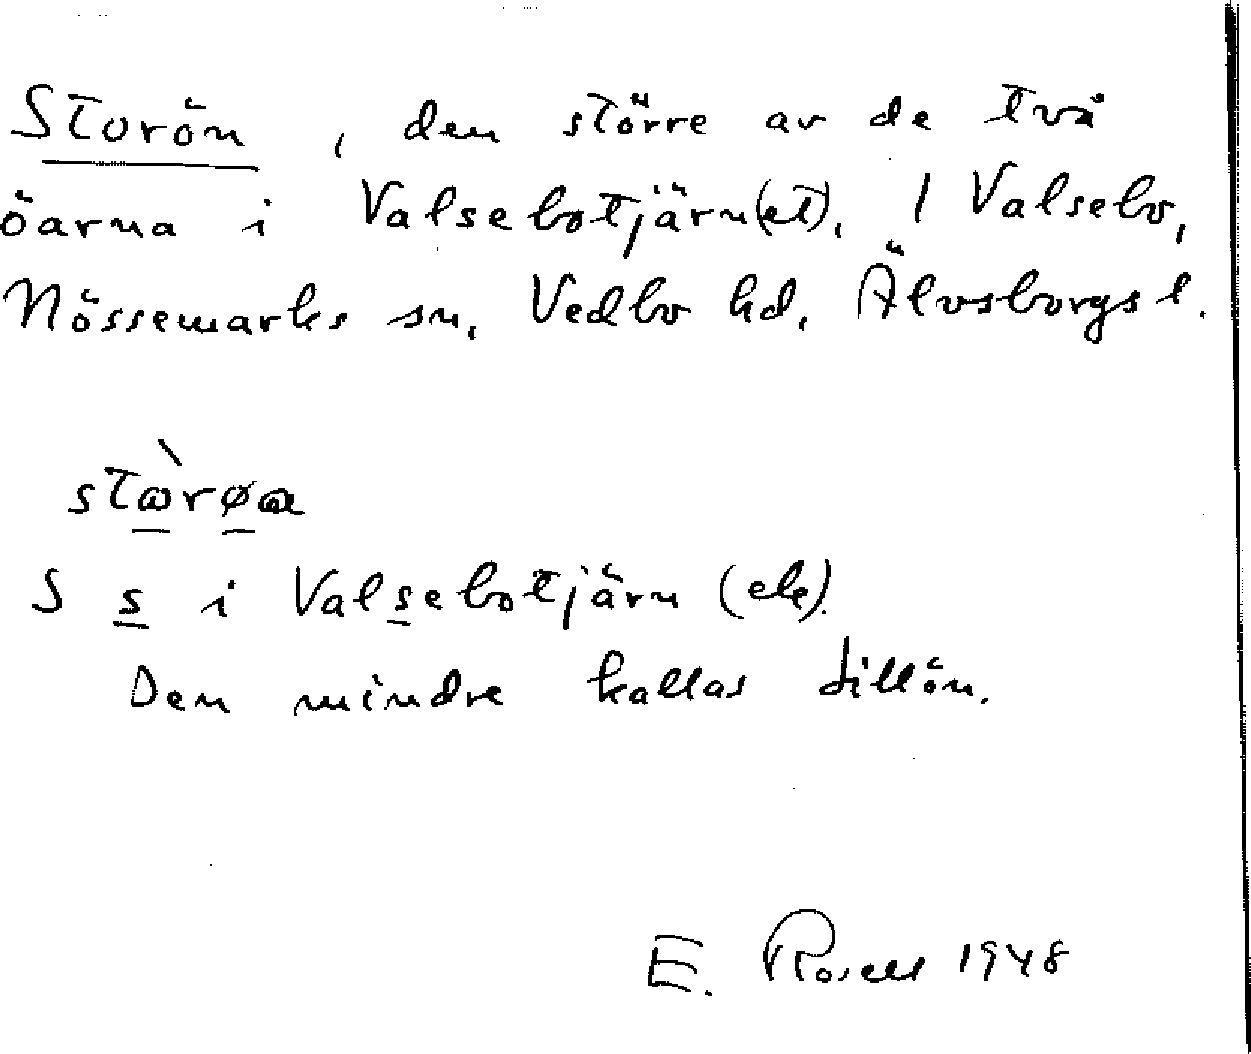 Storön, den större av de två
öarna i Valsebotjärn(et), i Valsebo,
Nössemarks sn, Vedbo hd, Älvsborgs l.
S s i Valsebotjärn (ek).
Den mindre kallas Lillön.
E. Rosell 1948